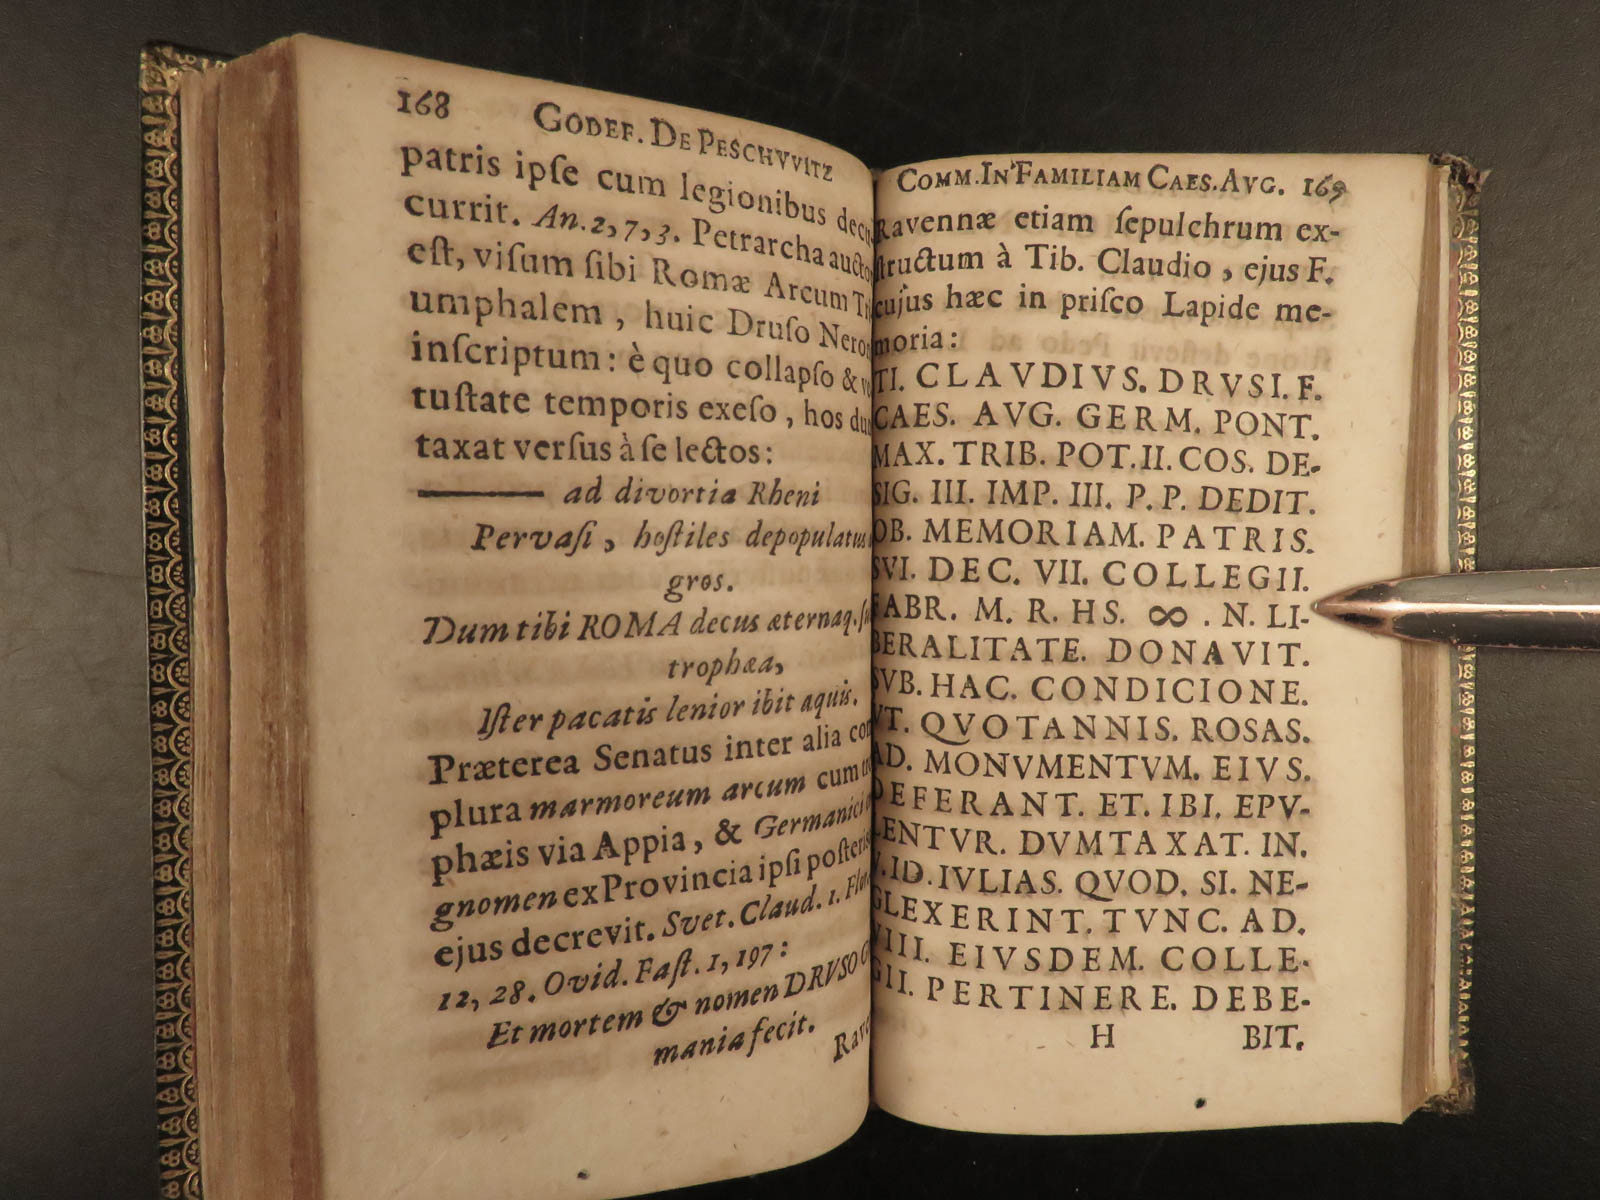 168 GODEF. DE PESCHVVITZ
patris ipſe cum legionibus
currit. An. 2, 7, 3. Petrarcha
eſt, viſum ſibi Romæ Arcum
umphalem, huic Druſo
inſcriptum: è quo collapſo &
tuſtate temporis exeſo, hos
taxat verſus à ſe lectos:
ad divortia Rheni
Pervaſi, hoſtiles depopulatus
gros.
Dum tibi ROMA decus æternaq.
trophæa,
Iſter pacatis lenior ibit aquis.
Præterea Senatus inter alia
plura marmoreum arcum cum
phæis via Appia, & Germanici
gnomen ex Provincia ipſi
ejus decrevit. Svet. Claud. 1.
12, 28. Ovid. Faſt. 1, 197:
Et mortem & nomen DRVSO
mania fecit.
COMM. IN FAMILIAM CAES. AVG. 169
Ravennæ etiam ſepulchrum ex-
ſtructum à Tib. Claudio, ejus F.
cujus hæc in priſco Lapide me-
moria:
TI. CLAVDIVS. DRVSI. F.
CAES. AVG. GERM. PONT.
MAX. TRIB. POT. II. COS. DE-
SIG. III. IMP. III. P. P. DEDIT.
OB. MEMORIAM. PATRIS.
SVI. DEC. VII. COLLEGII.
FABR. M. R. HS. ∞ . N. LI-
BERALITATE. DONAVIT.
SVB. HAC. CONDICIONE.
VT. QVOTANNIS. ROSAS.
AD. MONVMENTVM. EIVS.
DEFERANT. ET. IBI. EPV-
LENTVR. DVMTAXAT. IN.
ID. IVLIAS. QVOD. SI. NE-
GLEXERINT. TVNC. AD.
VIII. EIVSDEM. COLLE-
GII. PERTINERE. DEBE-
H BIT.